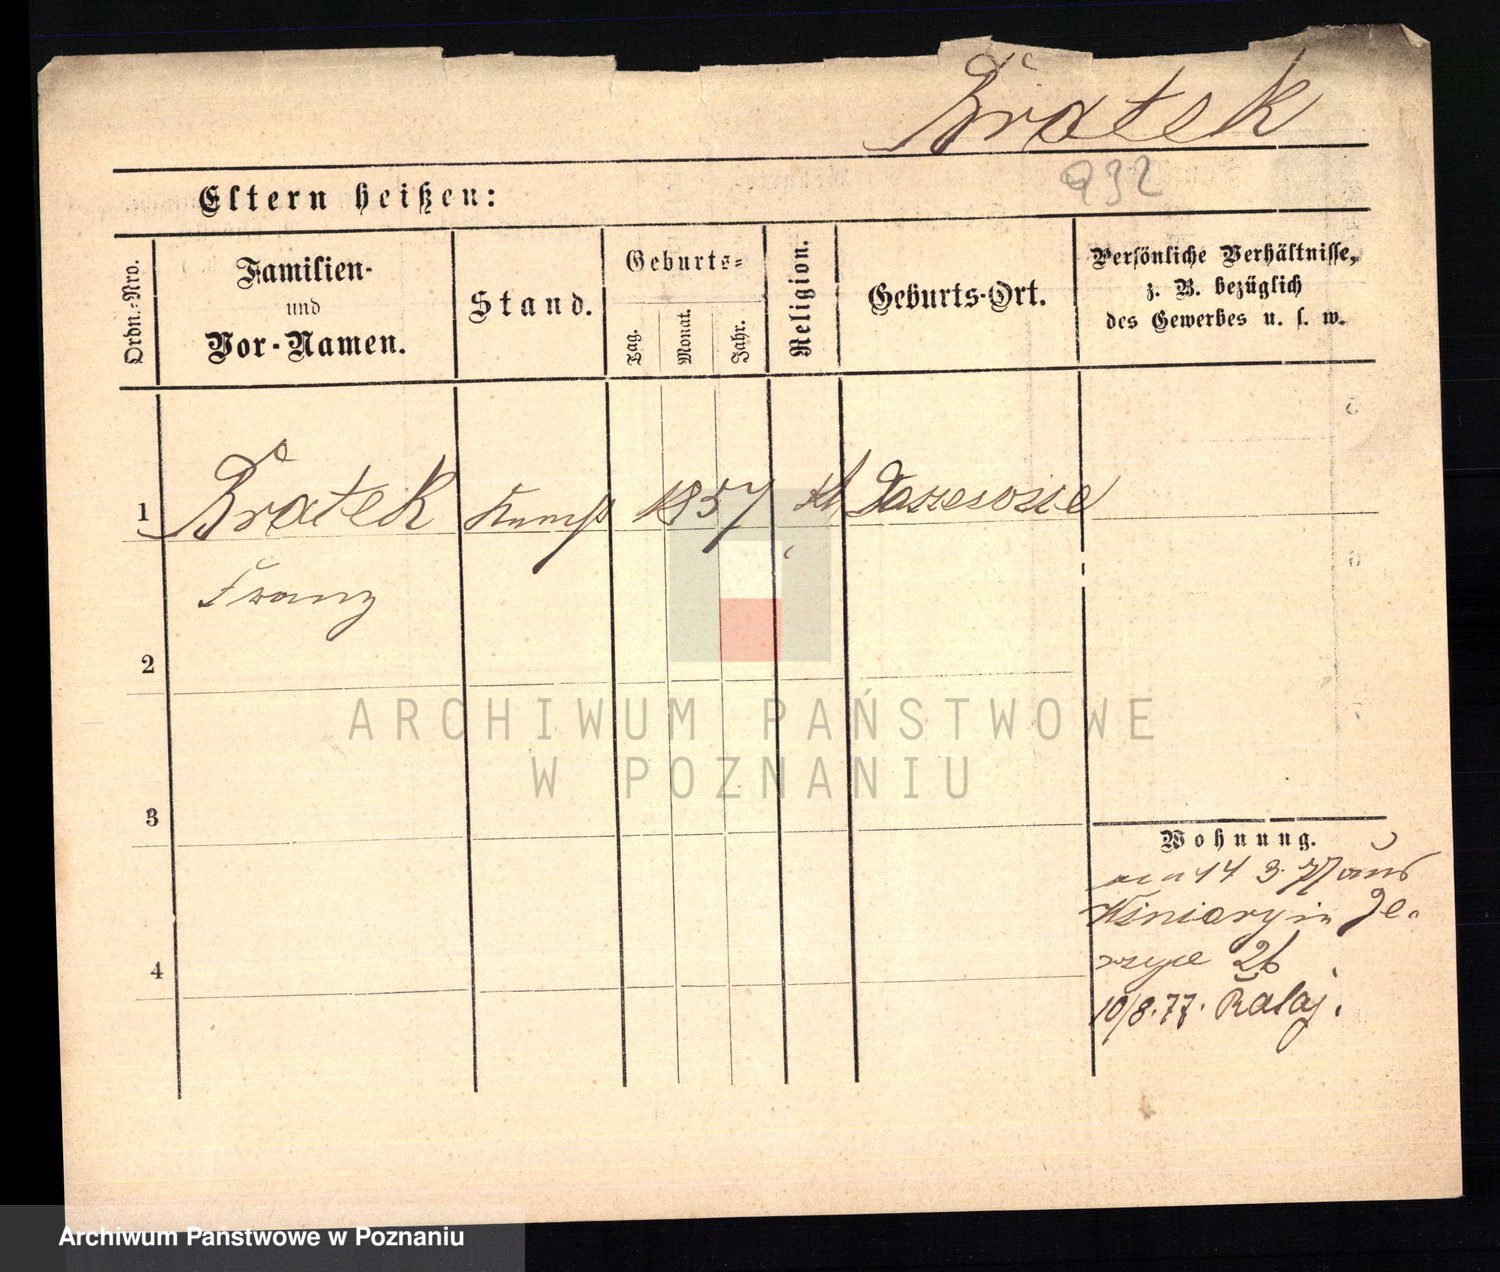 Bratek
932
Eltern heißen:
Ordn.-Nro.
Familien-
und
Vor-Namen.
Stand.
Geburts-
Tag.
Monat.
Jahr.
Religion.
Geburts-Ort.
Persönliche Verhältnisse,
z. B. bezüglich
des Gewerbes u. s. w.
1
Bratek
1857
Franz
2
ARCHIWUM PAŃSTWOWE
W POZNANIU
3
4
Wohnung.
14 3. 77 aus
Winiary in Je-
rzyce 26
10/8.77.
Archiwum Państwowe w Poznaniu